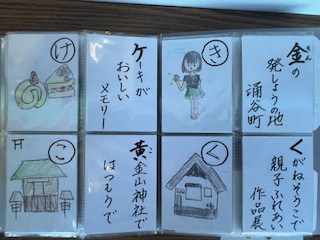 き
金の
きん
発しょうの地
涌谷町
け
ケーキが
おいしい
メモリー
く
くがねそうこで
親子ふれあい
作品展
こ
黄金山神社で
こ
はつもうで